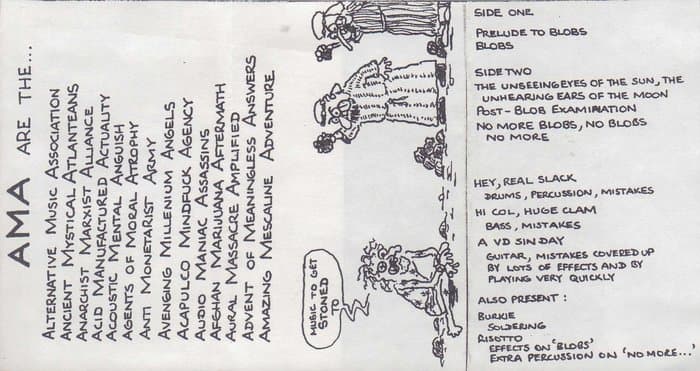 AMA ARE THE...
ALTERNATIVE MUSIC ASSOCIATION
ANCIENT MYSTICAL ATLANTEANS
ANARCHIST MARXIST ALLIANCE
ACID MANUFACTURED ACTUALITY
ACOUSTIC MENTAL ANGUISH
AGENTS OF MORAL ATROPHY
ANTI MONETARIST ARMY
AVENGING MILLENIUM ANGELS
ACAPULCO MINDFUCK AGENCY
AUDIO MANIAC ASSASSINS
AFGHAN MARIJUANA AFTERMATH
AURAL MASSACRE AMPLIFIED
ADVENT OF MEANINGLESS ANSWERS
AMAZING MESCALINE ADVENTURE
MUSIC TO GET
STONED
TO
SIDE ONE
PRELUDE TO BLOBS
BLOBS
SIDE TWO
THE UNSEEING EYES OF THE SUN, THE
UNHEARING EARS OF THE MOON
POST-BLOB EXAMINATION
NO MORE BLOBS, NO BLOBS
NO MORE
HEY, REAL SLACK
DRUMS, PERCUSSION, MISTAKES
HI COL, HUGE CLAM
BASS, MISTAKES
A VD SIN DAY
GUITAR, MISTAKES COVERED UP
BY LOTS OF EFFECTS AND BY
PLAYING VERY QUICKLY
ALSO PRESENT :
BURKIE
SOLDERING
RISOTTO
EFFECTS ON 'BLOBS'
EXTRA PERCUSSION ON 'NO MORE...'